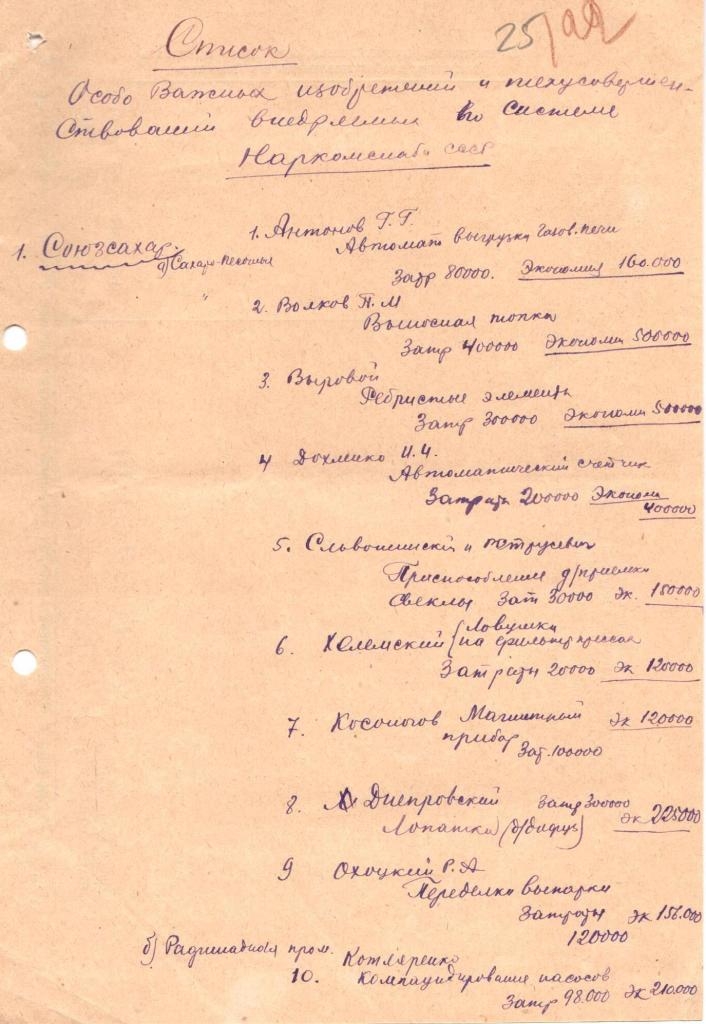 25/
Список
Особо Важных изобретений и техусовершен-
ствований внедряемых по системе
Наркомснаба ссср
1. Союзсахар.
а) Сахаро-Песочная
1. Антонов Г.Г.
Автомат выгрузки газов. печи
Затр 80000. Экономия 160.000
2. Волков П. М
Выносная топка
Затр 400000 Экономи 500000
3. Выровой
Ребристые элементы
Затр 300000 Экономи 500000
4 Дохленко И.И.
Автоматический счетчик
Затраты 200000 Экономи
400000
5. и
Приспособление д/приемки
свеклы Зат 30000 Эк. 150000
6. Хелемский Ловушки
на фильтпрессах
Затраты 20000 Эк 120000
7. Косоногов Магнитный Эк 120000
прибор
Зат. 100000
8. Днепровский Затр 300000
Лопатки (д/дифуз) Эк 225000
9 Охоцкий Р. А
Переделки выпарки
Затраты Эк 156.000
120000
б) Рафинадная пром.
Котляренко
10. Компаундирование насосов
Затр 98.000 Эк 210.000